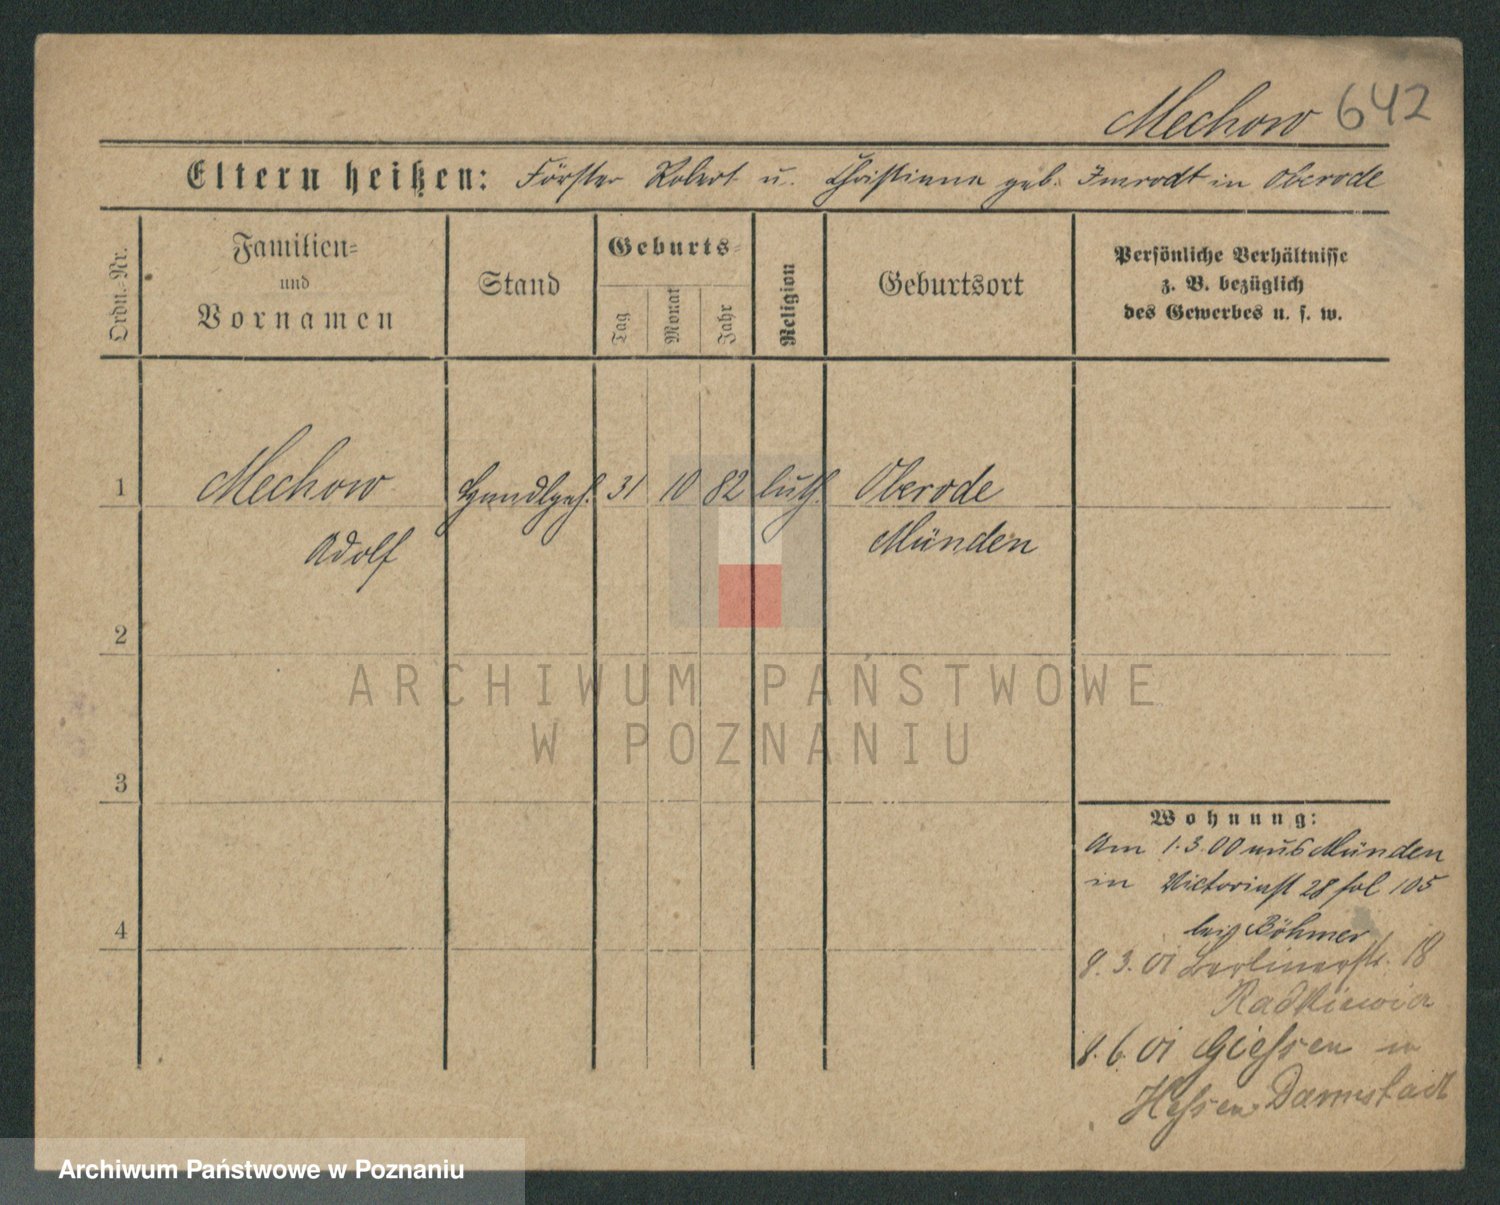 Mechow 642
Eltern heißen: Förster Robert u. Christiana geb. Imrodt in Oberode
Ordn.-Nr.
Familien-
und
Vornamen
Stand
Geburts-
Tag
Monat
Jahr
Religion
Geburtsort
Persönliche Verhältnisse
z. B. bezüglich
des Gewerbes u. s. w.
1 Mechow Handlgeh. 31 10 82 luth. Oberode
Adolf Münden
2
ARCHIWUM PAŃSTWOWE
W POZNANIU
3
Wohnung:
Am 1.3.00 aus Münden
in Victoriast 28 fol 105
4
bei Böhmer
8.3.01 Berlinerstr. 18
Radkiewicz
8.6.01 Giessen in
Hessen Darmstadt
Archiwum Państwowe w Poznaniu